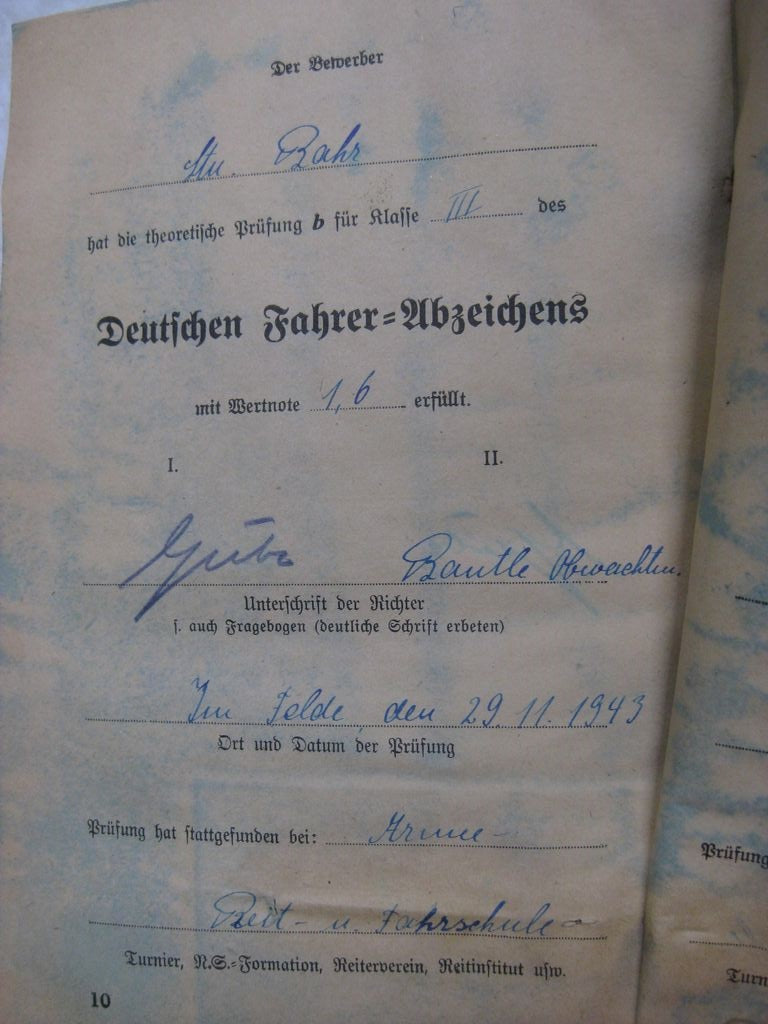 Der Bewerber
Bahr
hat die theoretische Prüfung b für Klasse III des
Deutschen Fahrer=Abzeichens
mit Wertnote 1,6 erfüllt.
I. II.
Bautle Obwachtm.
Unterschrift der Richter
s. auch Fragebogen (deutliche Schrift erbeten)
Im Felde, den 29.11.1943
Ort und Datum der Prüfung
Prüfung hat stattgefunden bei: Armee-
Reit- u. Fahrschule
Turnier, N.S.=Formation, Reiterverein, Reitinstitut usw.
10
Prüfung
Turn